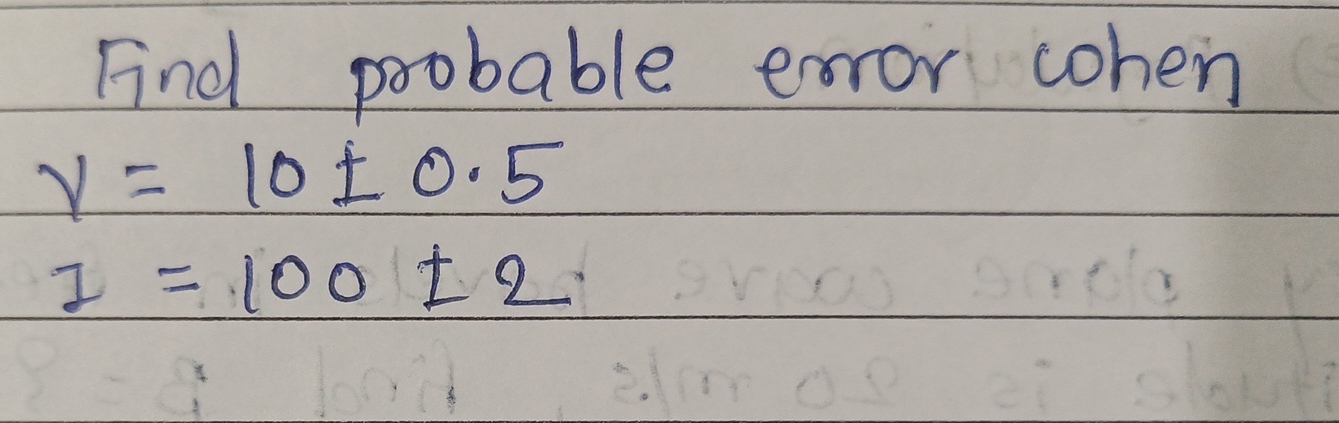 Find probable error when
V = 10 ± 0.5
I = 100 ± 2